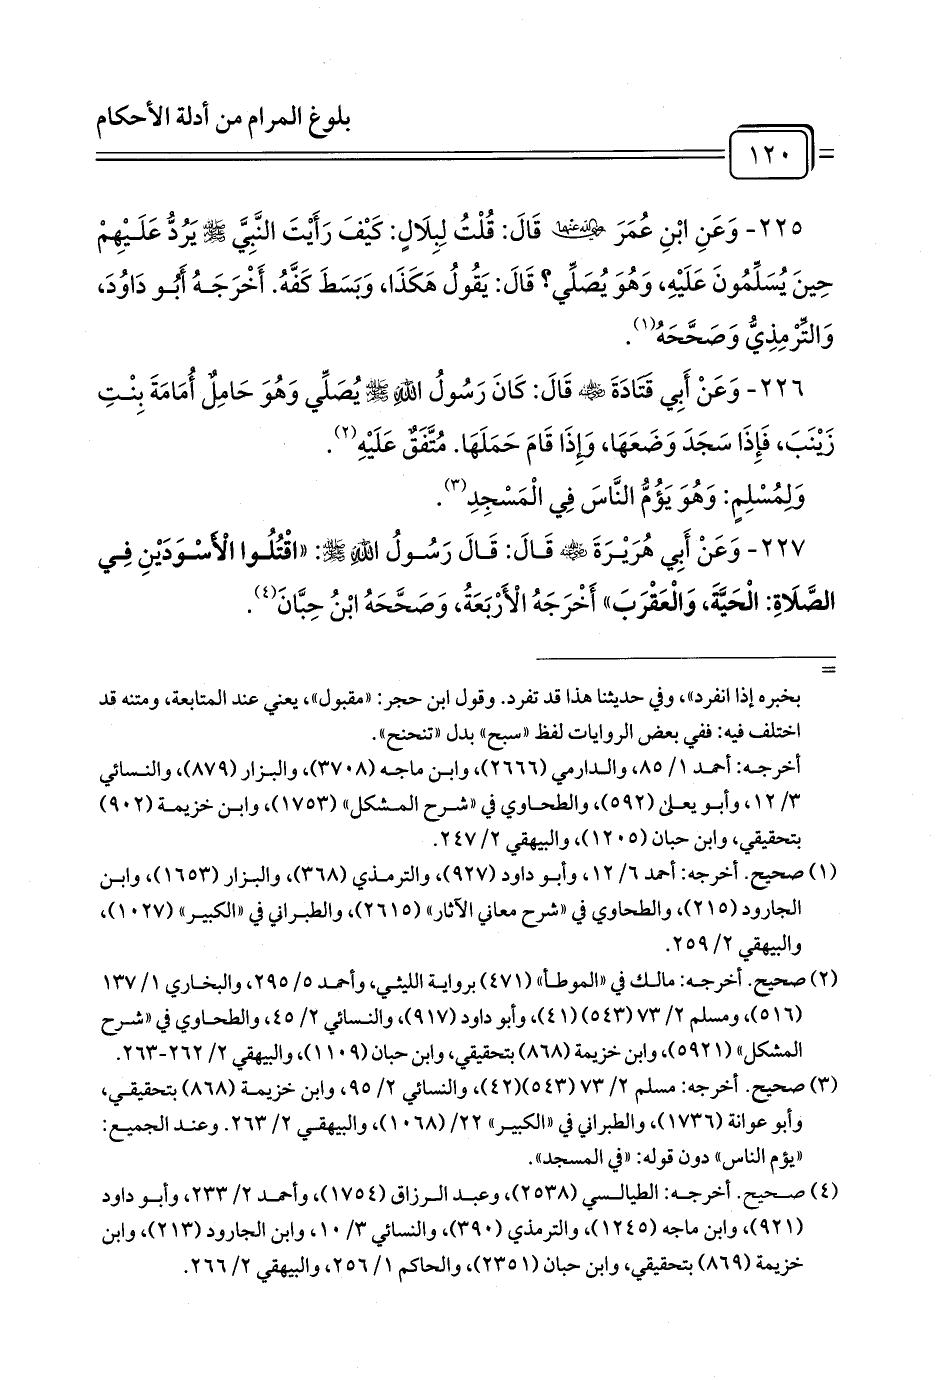 بلوغ المرام من أدلة الأحكام
١٢٠
٢٢٥- وَعَنِ ابْنِ عُمَرَ رضي الله عنهما قَالَ: قُلْتُ لِبِلَالٍ: كَيْفَ رَأَيْتَ النَّبِيَّ ﷺ يَرُدُّ عَلَيْهِمْ
حِينَ يُسَلِّمُونَ عَلَيْهِ، وَهُوَ يُصَلِّي؟ قَالَ: يَقُولُ هَكَذَا، وَبَسَطَ كَفَّهُ. أَخْرَجَهُ أَبُو دَاوُدَ،
وَالتِّرْمِذِيُّ وَصَحَّحَهُ(١).
٢٢٦- وَعَنْ أَبِي قَتَادَةَ رضي الله عنه قَالَ: كَانَ رَسُولُ اللهِ ﷺ يُصَلِّي وَهُوَ حَامِلٌ أُمَامَةَ بِنْتِ
زَيْنَبَ، فَإِذَا سَجَدَ وَضَعَهَا، وَإِذَا قَامَ حَمَلَهَا. مُتَّفَقٌ عَلَيْهِ(٢).
وَلِمُسْلِمٍ: وَهُوَ يَؤُمُّ النَّاسَ فِي الْمَسْجِدِ(٣).
٢٢٧- وَعَنْ أَبِي هُرَيْرَةَ رضي الله عنه قَالَ: قَالَ رَسُولُ اللهِ ﷺ: «اقْتُلُوا الْأَسْوَدَيْنِ فِي
الصَّلَاةِ: الْحَيَّةَ، وَالْعَقْرَبَ» أَخْرَجَهُ الْأَرْبَعَةُ، وَصَحَّحَهُ ابْنُ حِبَّانَ(٤).
=
بخبره إذا انفرد»، وفي حديثنا هذا قد تفرد. وقول ابن حجر: «مقبول»، يعني عند المتابعة، ومتنه قد
اختلف فيه: ففي بعض الروايات لفظ «سبح» بدل «تنحنح».
أخرجه: أحمد ١/ ٨٥، والدارمي (٢٦٦٦)، وابن ماجه (٣٧٠٨)، والبزار (٨٧٩)، والنسائي
٣/ ١٢، وأبو يعلى (٥٩٢)، والطحاوي في «شرح المشكل» (١٧٥٣)، وابن خزيمة (٩٠٢)
بتحقيقي، وابن حبان (١٢٠٥)، والبيهقي ٢/ ٢٤٧.
(١) صحيح. أخرجه: أحمد ٦/ ١٢، وأبو داود (٩٢٧)، والترمذي (٣٦٨)، والبزار (١٦٥٣)، وابن
الجارود (٢١٥)، والطحاوي في «شرح معاني الآثار» (٢٦١٥)، والطبراني في «الكبير» (١٠٢٧)،
والبيهقي ٢/ ٢٥٩.
(٢) صحيح. أخرجه: مالك في «الموطأ» (٤٧١) برواية الليثي، وأحمد ٥/ ٢٩٥، والبخاري ١/ ١٣٧
(٥١٦)، ومسلم ٢/ ٧٣ (٥٤٣) (٤١)، وأبو داود (٩١٧)، والنسائي ٢/ ٤٥، والطحاوي في «شرح
المشكل» (٥٩٢١)، وابن خزيمة (٨٦٨) بتحقيقي، وابن حبان (١١٠٩)، والبيهقي ٢/ ٢٦٢-٢٦٣.
(٣) صحيح. أخرجه: مسلم ٢/ ٧٣ (٥٤٣)(٤٢)، والنسائي ٢/ ٩٥، وابن خزيمة (٨٦٨) بتحقيقي،
وأبو عوانة (١٧٣٦)، والطبراني في «الكبير» ٢٢/ (١٠٦٨)، والبيهقي ٢/ ٢٦٣. وعند الجميع:
«يؤم الناس» دون قوله: «في المسجد».
(٤) صحيح. أخرجه: الطيالسي (٢٥٣٨)، وعبد الرزاق (١٧٥٤)، وأحمد ٢/ ٢٣٣، وأبو داود
(٩٢١)، وابن ماجه (١٢٤٥)، والترمذي (٣٩٠)، والنسائي ٣/ ١٠، وابن الجارود (٢١٣)، وابن
خزيمة (٨٦٩) بتحقيقي، وابن حبان (٢٣٥١)، والحاكم ١/ ٢٥٦، والبيهقي ٢/ ٢٦٦.